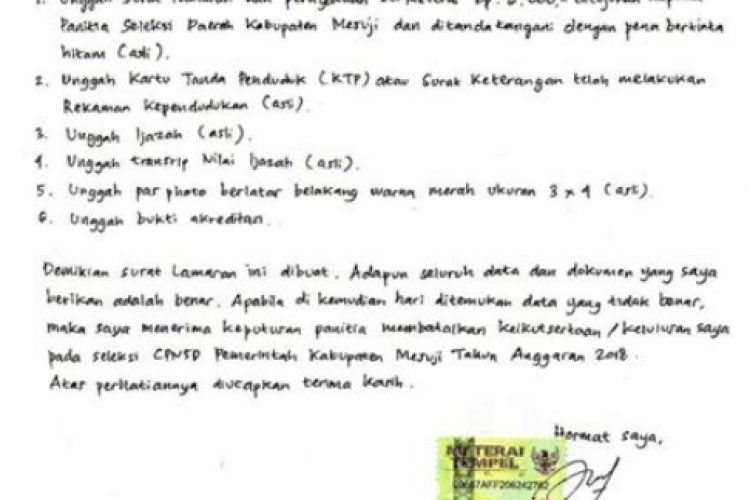 Panitia Seleksi Daerah Kabupaten Mesuji dan ditandatangani dengan pena bertinta
hitam (asli).
2. Unggah Kartu Tanda Penduduk (KTP) atau Surat Keterangan telah melakukan
Rekaman Kependudukan (asli).
3. Unggah Ijazah (asli).
4. Unggah transrip Nilai Ijasah (asli).
5. Unggah pas photo berlatar belakang warna merah ukuran 3 x 4 (asli).
6. Unggah bukti akreditan.
Demikian surat Lamaran ini dibuat. Adapun seluruh data dan dokumen yang saya
berikan adalah benar. Apabila di kemudian hari ditemukan data yang tidak benar,
maka saya menerima keputusan panitia membatalkan keikutsertaan / kelulusan saya
pada seleksi CPNSD Pemerintah Kabupaten Mesuji Tahun Anggaran 2018.
Atas perhatiannya diucapkan terima kasih.
Hormat saya,
METERAI
TEMPEL